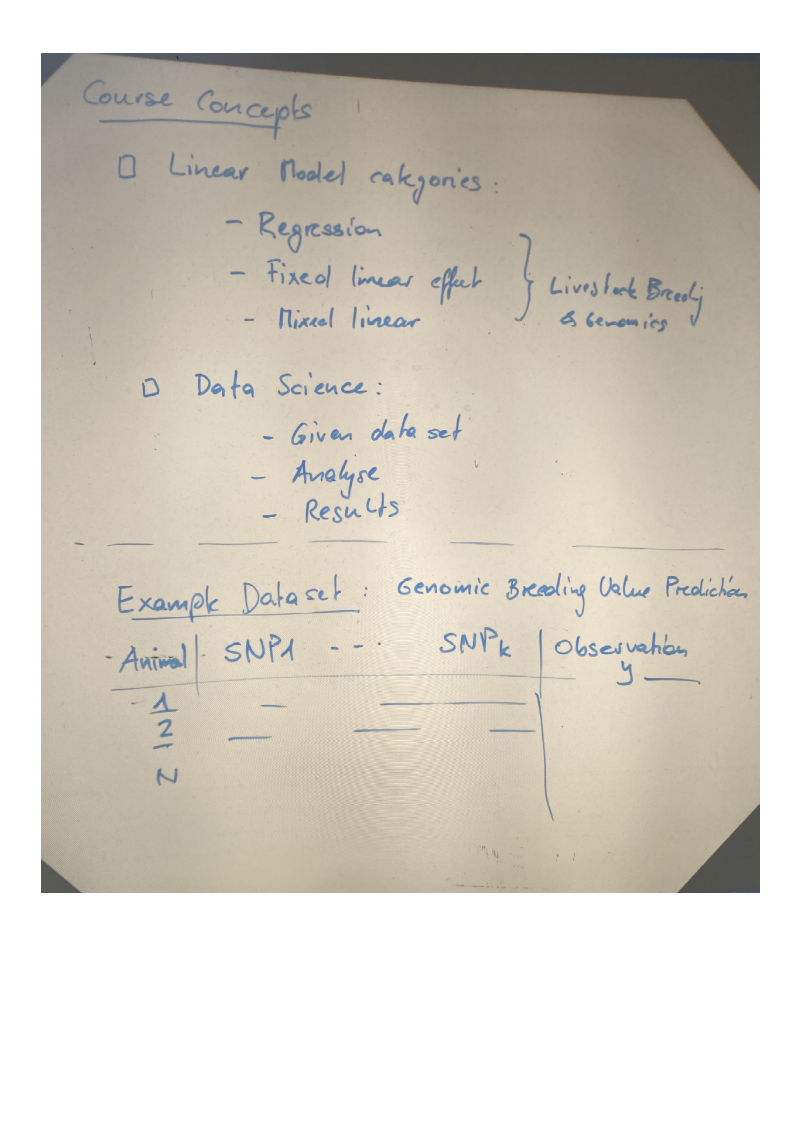 Course Concepts
□ Linear Model categories:
- Regression
- Fixed linear effect
- Mixed linear
} Livestock Breeding
& Genomics
□ Data Science:
- Given data set
- Analyse
- Results
Example Dataset: Genomic Breeding Value Prediction
Animal | SNP1 - - · SNPk | Observation
y
1
2
N